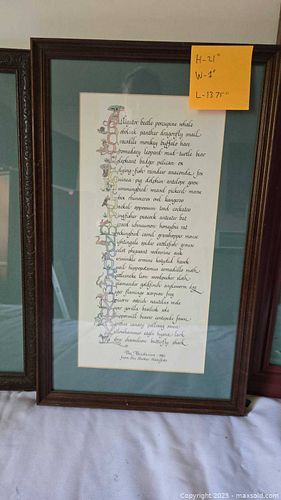 H-21"
W-1"
L-13.75"
Alligator beetle porcupine whale
panther dragonfly snail
monkey buffalo hare
leopard mud-turtle bear
elephant badger pelican ox
flying-fish reindeer anaconda fox
guinea-pig dolphin antelope goose
hummingbird weasel pickerel moth
ibex rhinoceros owl kangaroo
jackal opossum toad cockatoo
kingfisher peacock anteater bat
lizard ichneumon honeybee rat
mockingbird camel grasshopper mouse
nightingale spider cuttlefish grouse
ocelot pheasant wolverine auk
periwinkle ermine katydid hawk
hippopotamus armadillo moth
lion woodpecker sloth
salamander goldfinch angleworm dog
tiger flamingo scorpion frog
ostrich nautilus mole
gorilla basilisk
whippoorwill beaver centipede fawn
canary
eagle hyena lark
chameleon butterfly shark
© 2023 - maxsold.com